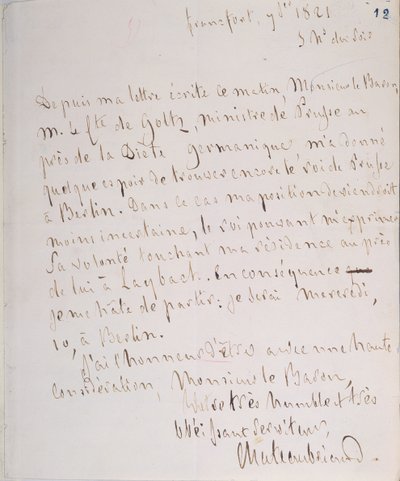 francfort, 7 1821
12
5 h. du soir
Depuis ma lettre écrite ce matin, Monsieur le Baron,
M. le Cte de Goltz, ministre de Prusse au
près de la Diete germanique m'a donné
quelque espoir de trouver encore le roi de Prusse
à Berlin. Dans ce cas ma position deviendroit
moins incertaine, le roi pouvant m'exprimer
Sa volonté touchant ma résidence au près
de lui à Laybach. En conséquence
je me hâte de partir: je serai mercredi,
10, à Berlin.
J'ai l'honneur d'être avec une haute
considération, Monsieur le Baron,
Votre très humble & très
obéissant serviteur,
Chateaubriand.